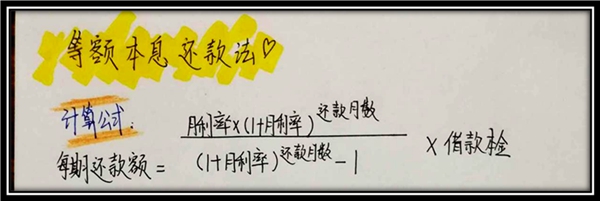 等额本息还款法♡
计算公式:
每期还款额 = 月利率×(1+月利率)^还款月数 / (1+月利率)^还款月数 - 1 × 借款本金